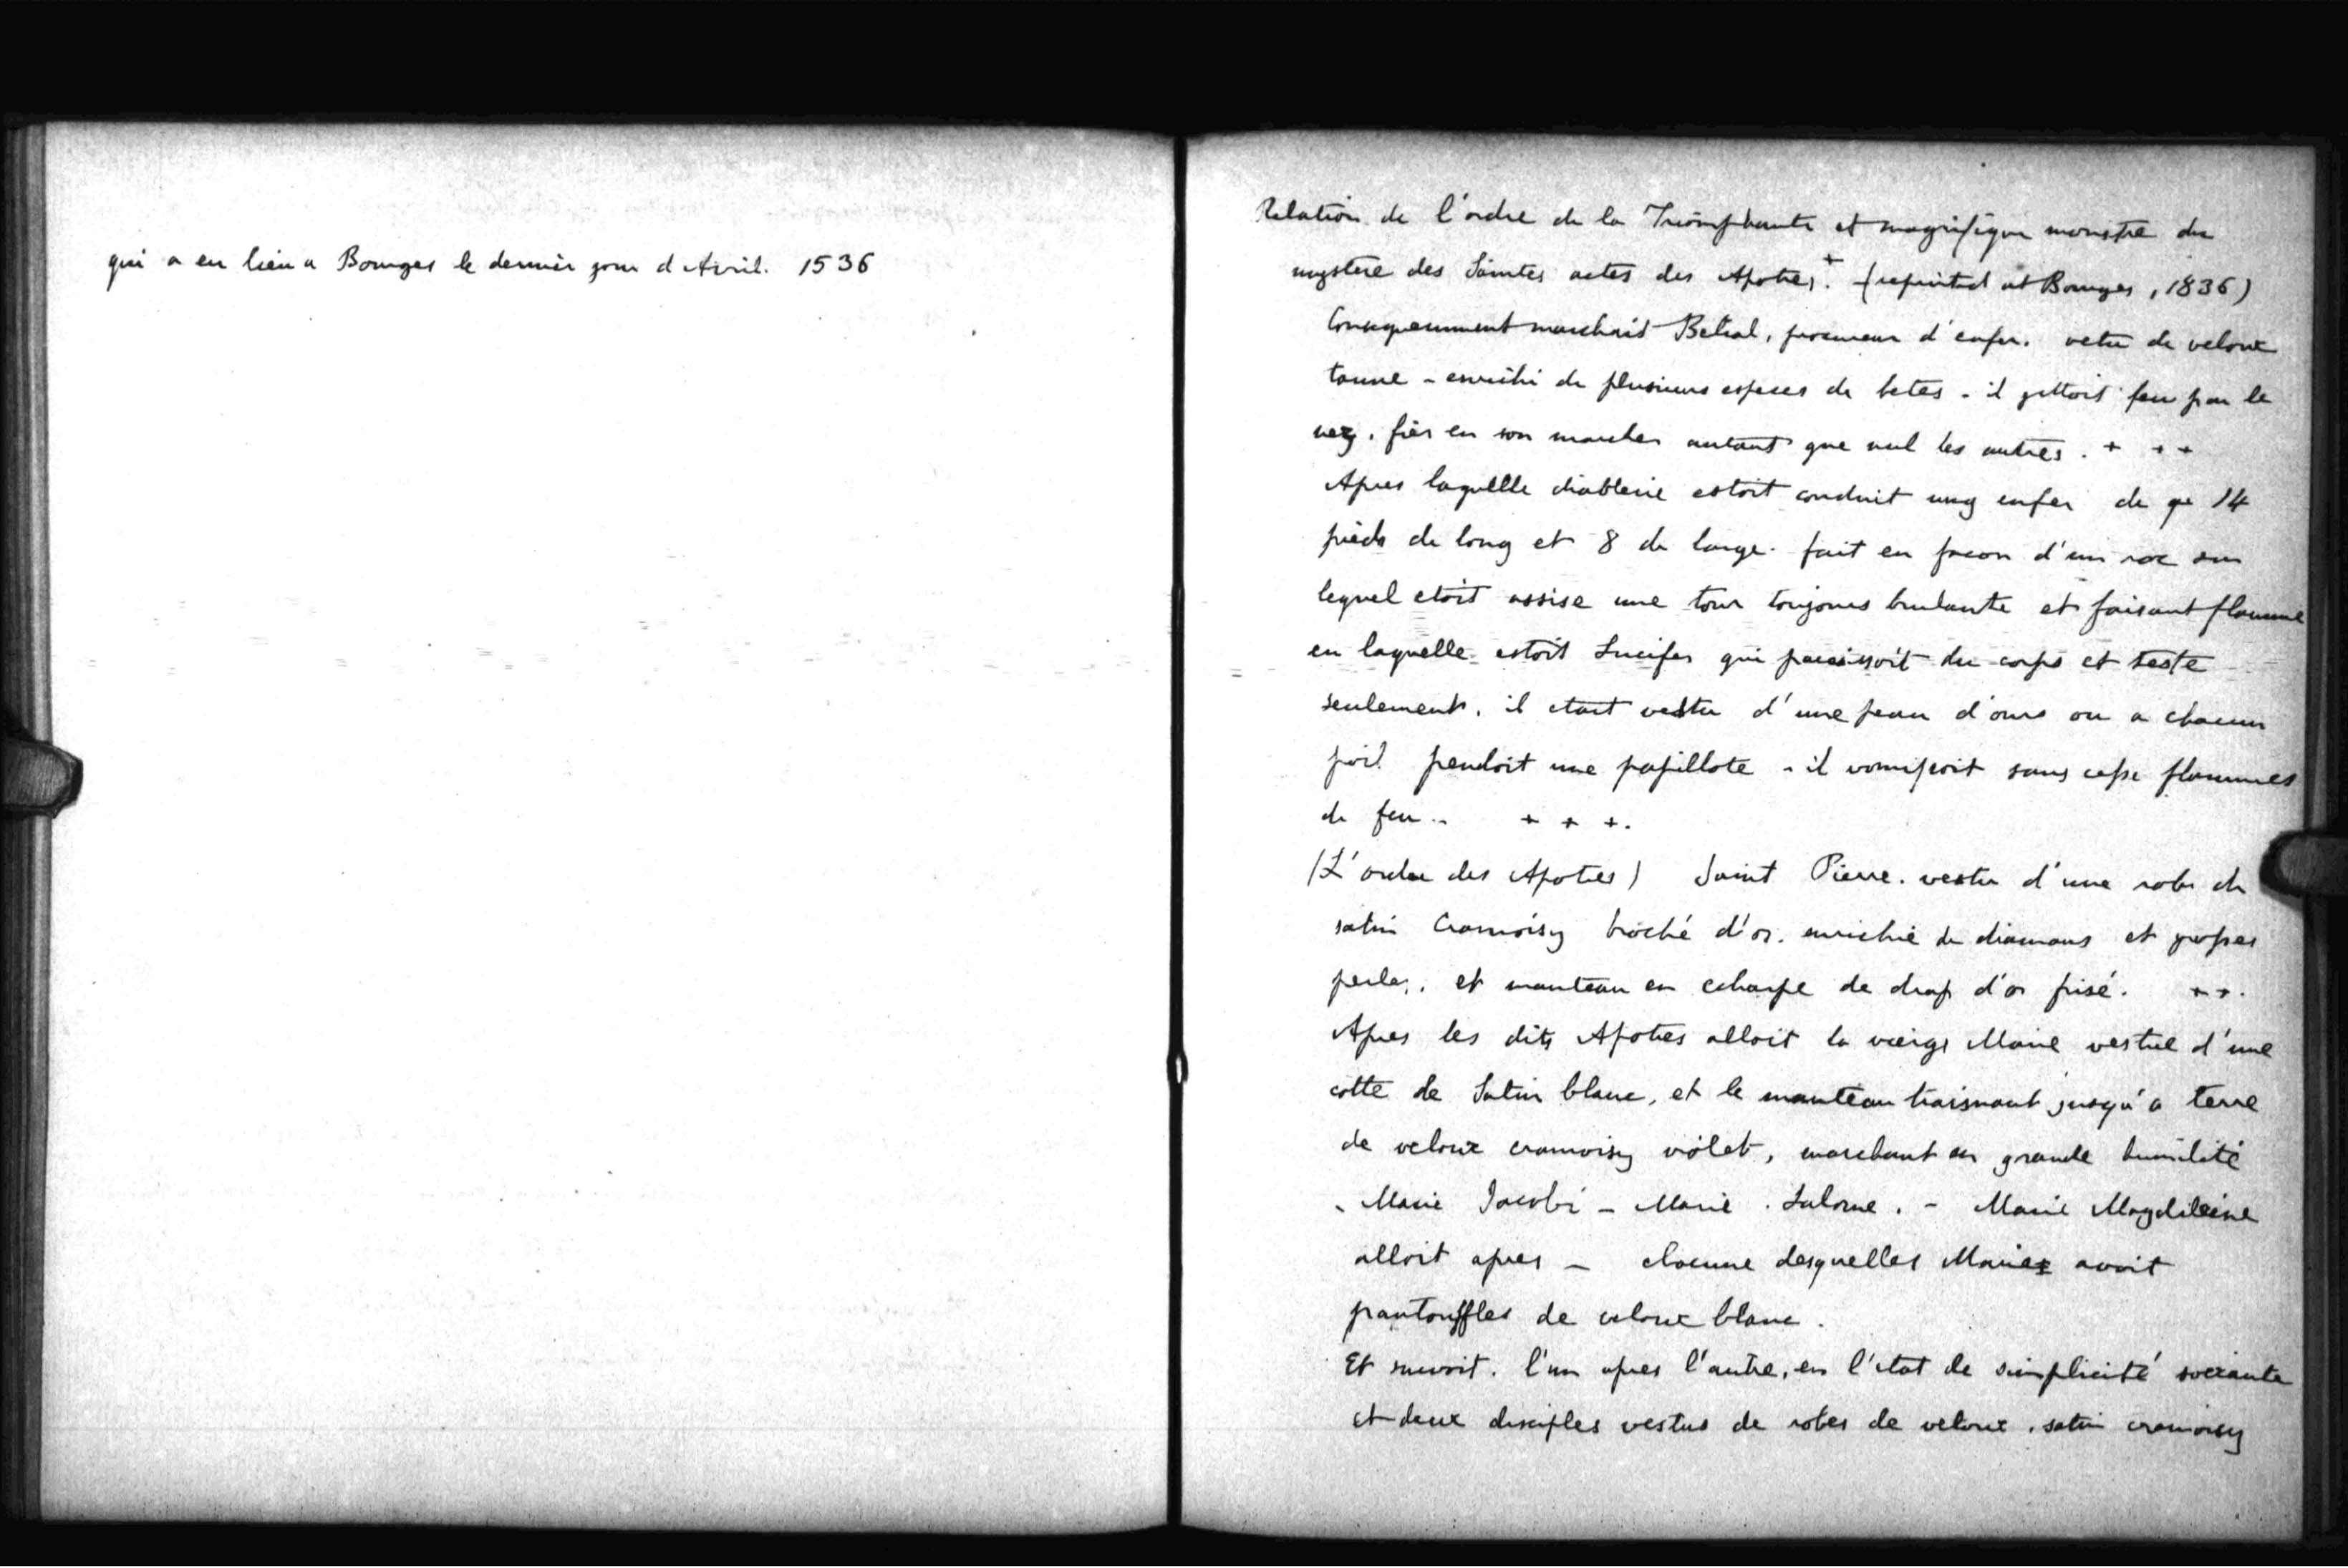 qui a eu lieu a Bourges le dernier jour d Avril. 1536
Relation de l'ordre de la Triomphante et magnifique monstre du
mystere des Saintes actes des Apotres. + (reprinted at Bourges, 1836)
Consequemment marchait Belial, procureur d'enfer. vetu de veloux
tanne - enrichi de plusieurs especes de betes - il gettoit feu par le
nez, fier en son marcher autant que nul les autres. + + +
Apres laquelle diablerie estoit conduit ung enfer de 14
pieds de long et 8 de large. fait en facon d'un roc sur
lequel etoit assise une tour toujours brulante et faisant flamme
en laquelle estoit Lucifer qui paraissoit du corps et teste
seulement, il etait vestu d'une peau d'ours ou a chacun
poil pendoit une papillote - il vomissoit sans cesse flammes
de feu - + + +.
(L'ordre des Apotres) Saint Pierre. vestu d'une robe de
satin Cramoisy broché d'or. enrichie de diamans et grosses
perles, et manteau en echarpe de drap d'or frisé. + +.
Apres les dits Apotres alloit la vierge Marie vestue d'une
cotte de Satin blanc, et le manteau traisnant jusqu'a terre
de veloux cramoisy violet, marchant en grande humilité
- Marie Jacobi - Marie. Salome. - Marie Magdileine
alloit apres - chacune desquelles Maries avoit
pantouffles de veloux blanc.
Et suivoit. l'un apres l'autre, en l'etat de simplicité soixante
et deux disciples vestus de robes de veloux, satin cramoisy